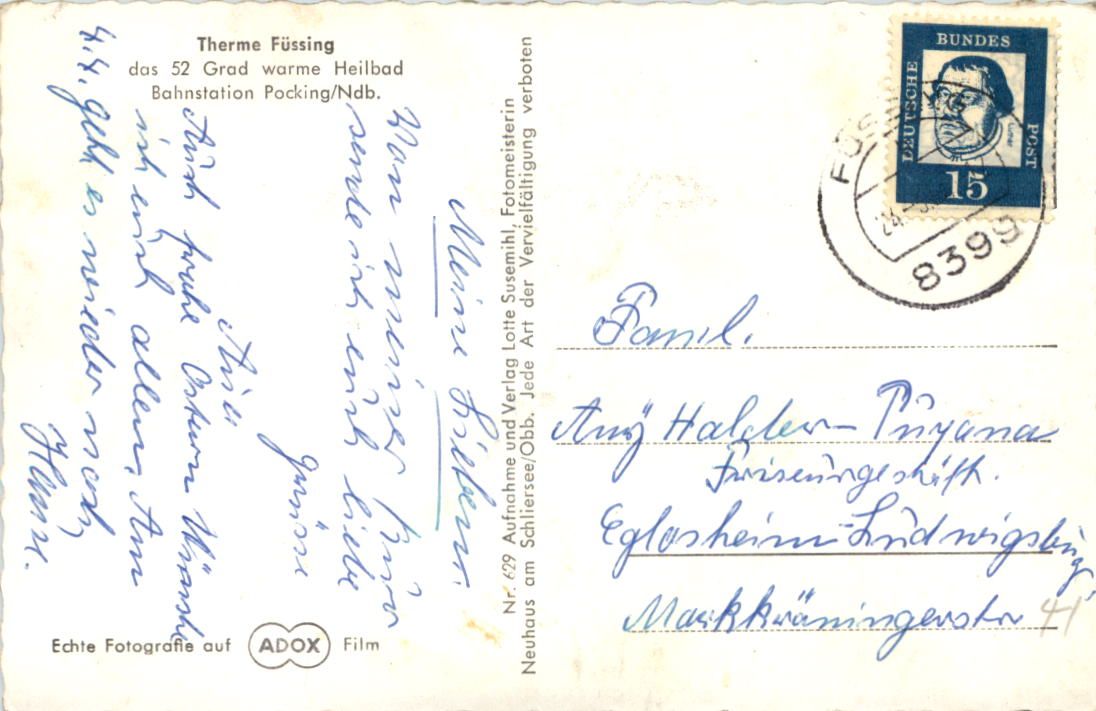 Therme Füssing
das 52 Grad warme Heilbad
Bahnstation Pocking/Ndb.
Meine Lieben.
Von meiner Kur
sende ich euch liebe
Grüsse
Auch frohe Ostern Wünsche
ich euch allen. Am
4.4. geht es wieder nach
Hause.
Echte Fotografie auf ADOX Film
Nr. 629 Aufnahme und Verlag Lotte Susemihl, Fotomeisterin
Neuhaus am Schliersee/Obb. Jede Art der Vervielfältigung verboten
DEUTSCHE
BUNDES
POST
Luther
15
FÜSSING
8399
Famil.
Halder- Puyana
Friseurgeschäft.
Eglosheim-Ludwigsburg
Markkröningerstr 41